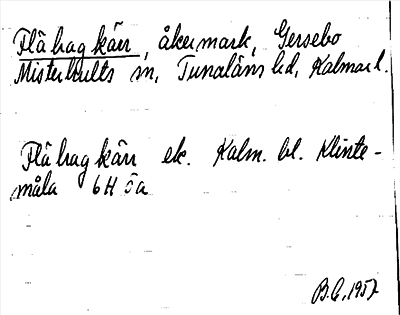 Flähagkärr, åkermark, Gersebo
Misterhults sn, Tunaläns hd, Kalmar l.
Flähagkärr ek. Kalm. bl. Klinte-
måla 6H 5a
B.C., 1957